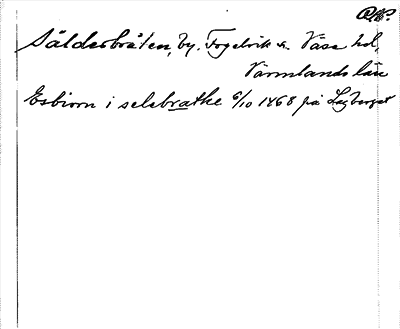 Sälderbråten, by. Fogelvik s. Väse hd,
Värmlands län
Esbiorn i selebratke 6/10 1468 på Lagberget